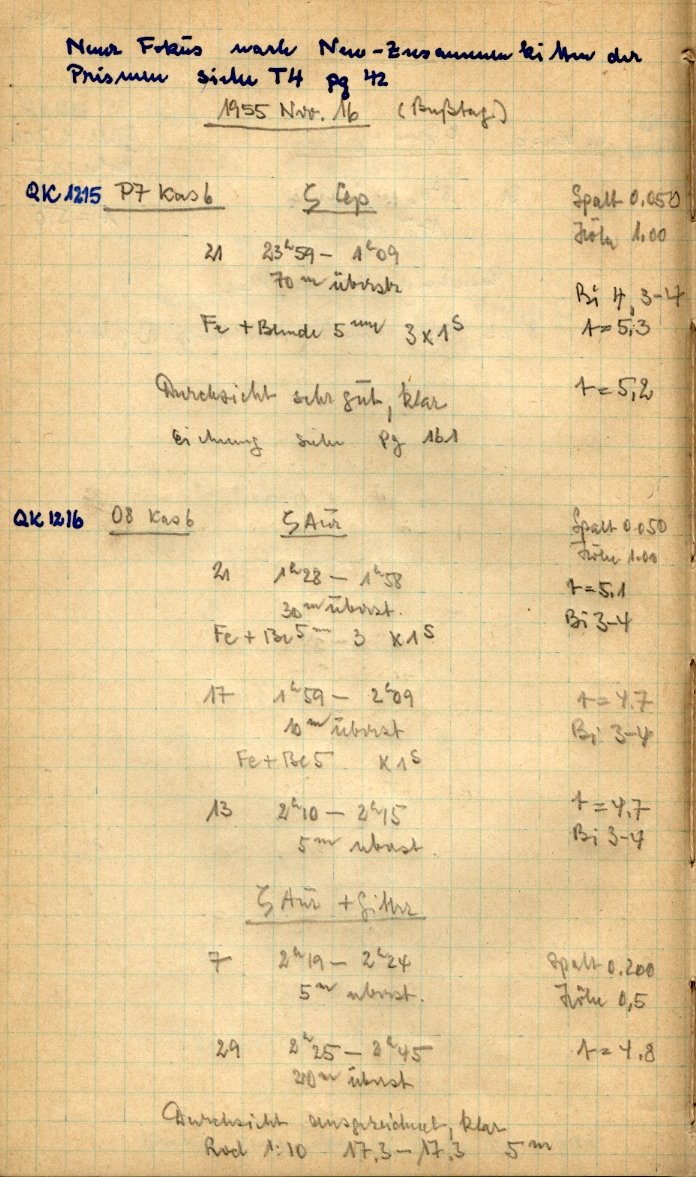 Neuer Fokus nach Neu-Zusammenkitten der
Prismen siehe T4 pg 42
1955 Nov. 16 (Bußtag)
QK 1215 P7 Kas 6 ζ Cep Spalt 0.050
Höhe 1.00
21 23h59 – 1h09
70m überst
Bi 4, 3-4
Fe + Blende 5mm 3x1s t=5,3
Durchsicht sehr gut, klar t=5,2
Eichung siehe pg 161
QK 1216 O8 Kas 6 ζ Aur Spalt 0.050
Höhe 1.00
21 1h28 – 1h58 t=5.1
30m überst. Bi 3-4
Fe + Be 5mm 3 x1s
17 1h59 – 2h09 t=4.7
10m überst Bi 3-4
Fe + Be 5 x1s
13 2h10 – 2h15 t=4,7
5m überst. Bi 3-4
ζ Aur + Gitter
7 2h19 – 2h24 Spalt 0.200
5m überst. Höhe 0,5
29 2h25 – 2h45 t=4.8
20m überst
Durchsicht ausgezeichnet, klar
Rod 1:10 17,3 – 17,3 5m